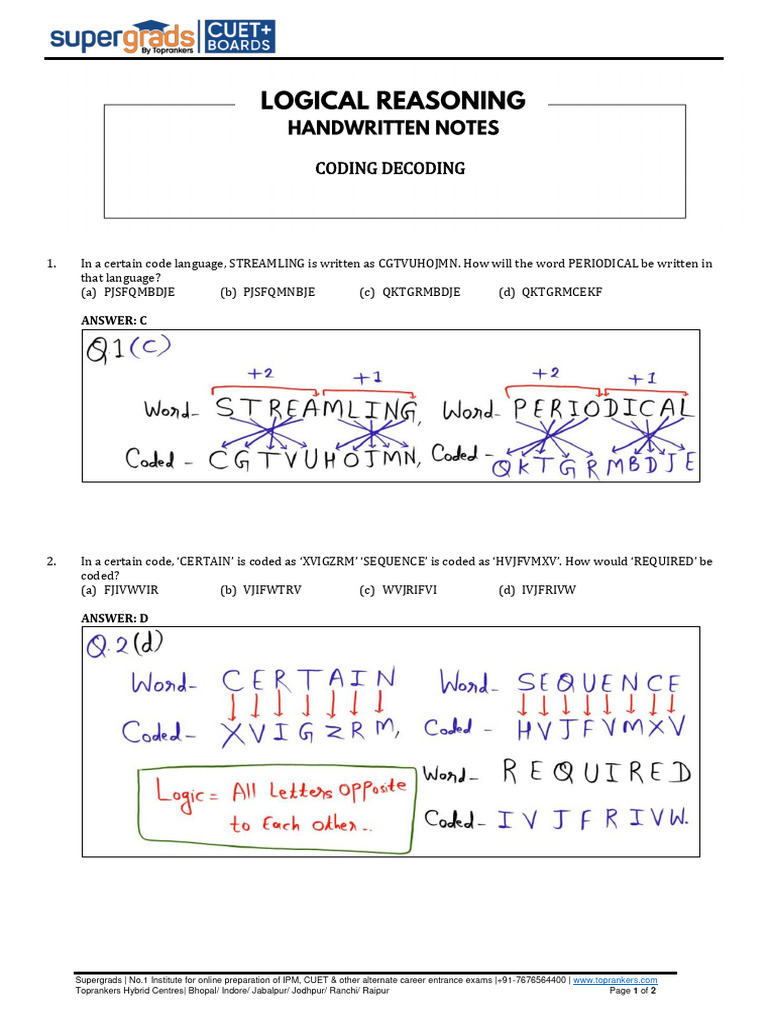 supergrads
By Toprankers
CUET+
BOARDS
LOGICAL REASONING
HANDWRITTEN NOTES
CODING DECODING
1. In a certain code language, STREAMLING is written as CGTVUHOJMN. How will the word PERIODICAL be written in
that language?
(a) PJSFQMBDJE (b) PJSFQMNBJE (c) QKTGRMBDJE (d) QKTGRMCEKF
ANSWER: C
Q.1 (c)
+2 +1 +2 +1
Word- STREAMLING, Word- PERIODICAL
Coded - CGTVUHOJMN, Coded - QKTGRMBDJE
2. In a certain code, ‘CERTAIN’ is coded as ‘XVIGZRM’ ‘SEQUENCE’ is coded as ‘HVJFVMXV’. How would ‘REQUIRED’ be
coded?
(a) FJIVWVIR (b) VJIFWTRV (c) WVJRIFVI (d) IVJFRIVW
ANSWER: D
Q.2 (d)
Word- CERTAIN Word- SEQUENCE
Coded- XVIGZRM, Coded - HVJFVMXV
Word- REQUIRED
Logic = All Letters opposite
to Each other..
Coded- IVJFRIVW.
Supergrads | No.1 Institute for online preparation of IPM, CUET & other alternate career entrance exams |+91-7676564400 | www.toprankers.com
Toprankers Hybrid Centres| Bhopal/ Indore/ Jabalpur/ Jodhpur/ Ranchi/ Raipur Page 1 of 2